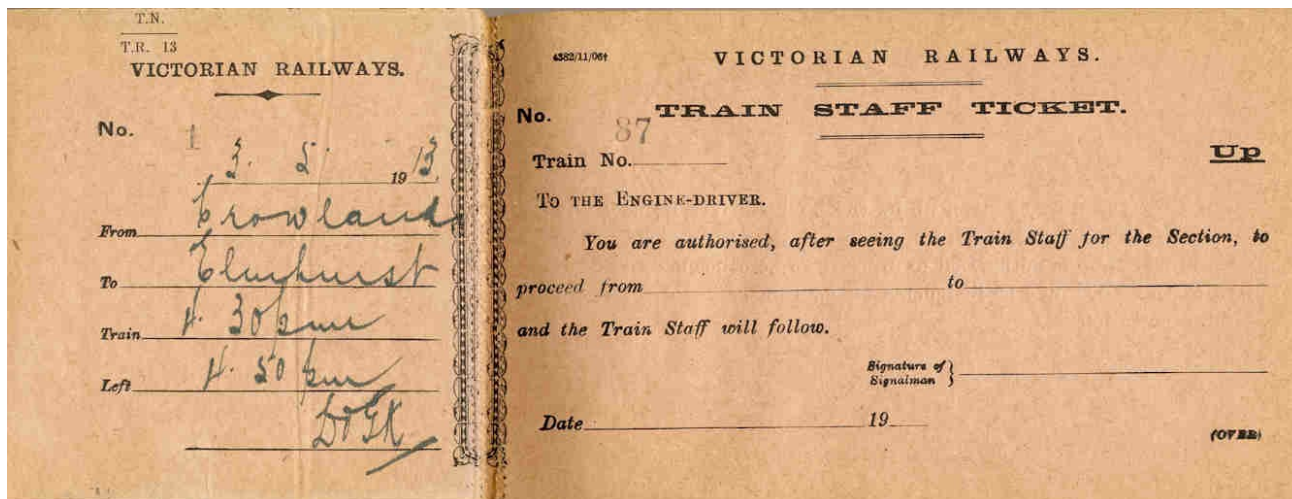 T.N.
T.R. 13
VICTORIAN RAILWAYS.
No. 1
3. 5. 1913
From Crowlands
To Elmhurst
Train 4. 30 pm
Left 4. 50 pm
4382/11/06†
VICTORIAN RAILWAYS.
TRAIN STAFF TICKET.
No. 87
Train No.
Up
TO THE ENGINE-DRIVER.
You are authorised, after seeing the Train Staff for the Section, to
proceed from to
and the Train Staff will follow.
Signature of
Signalman }
Date 19
(OVER)